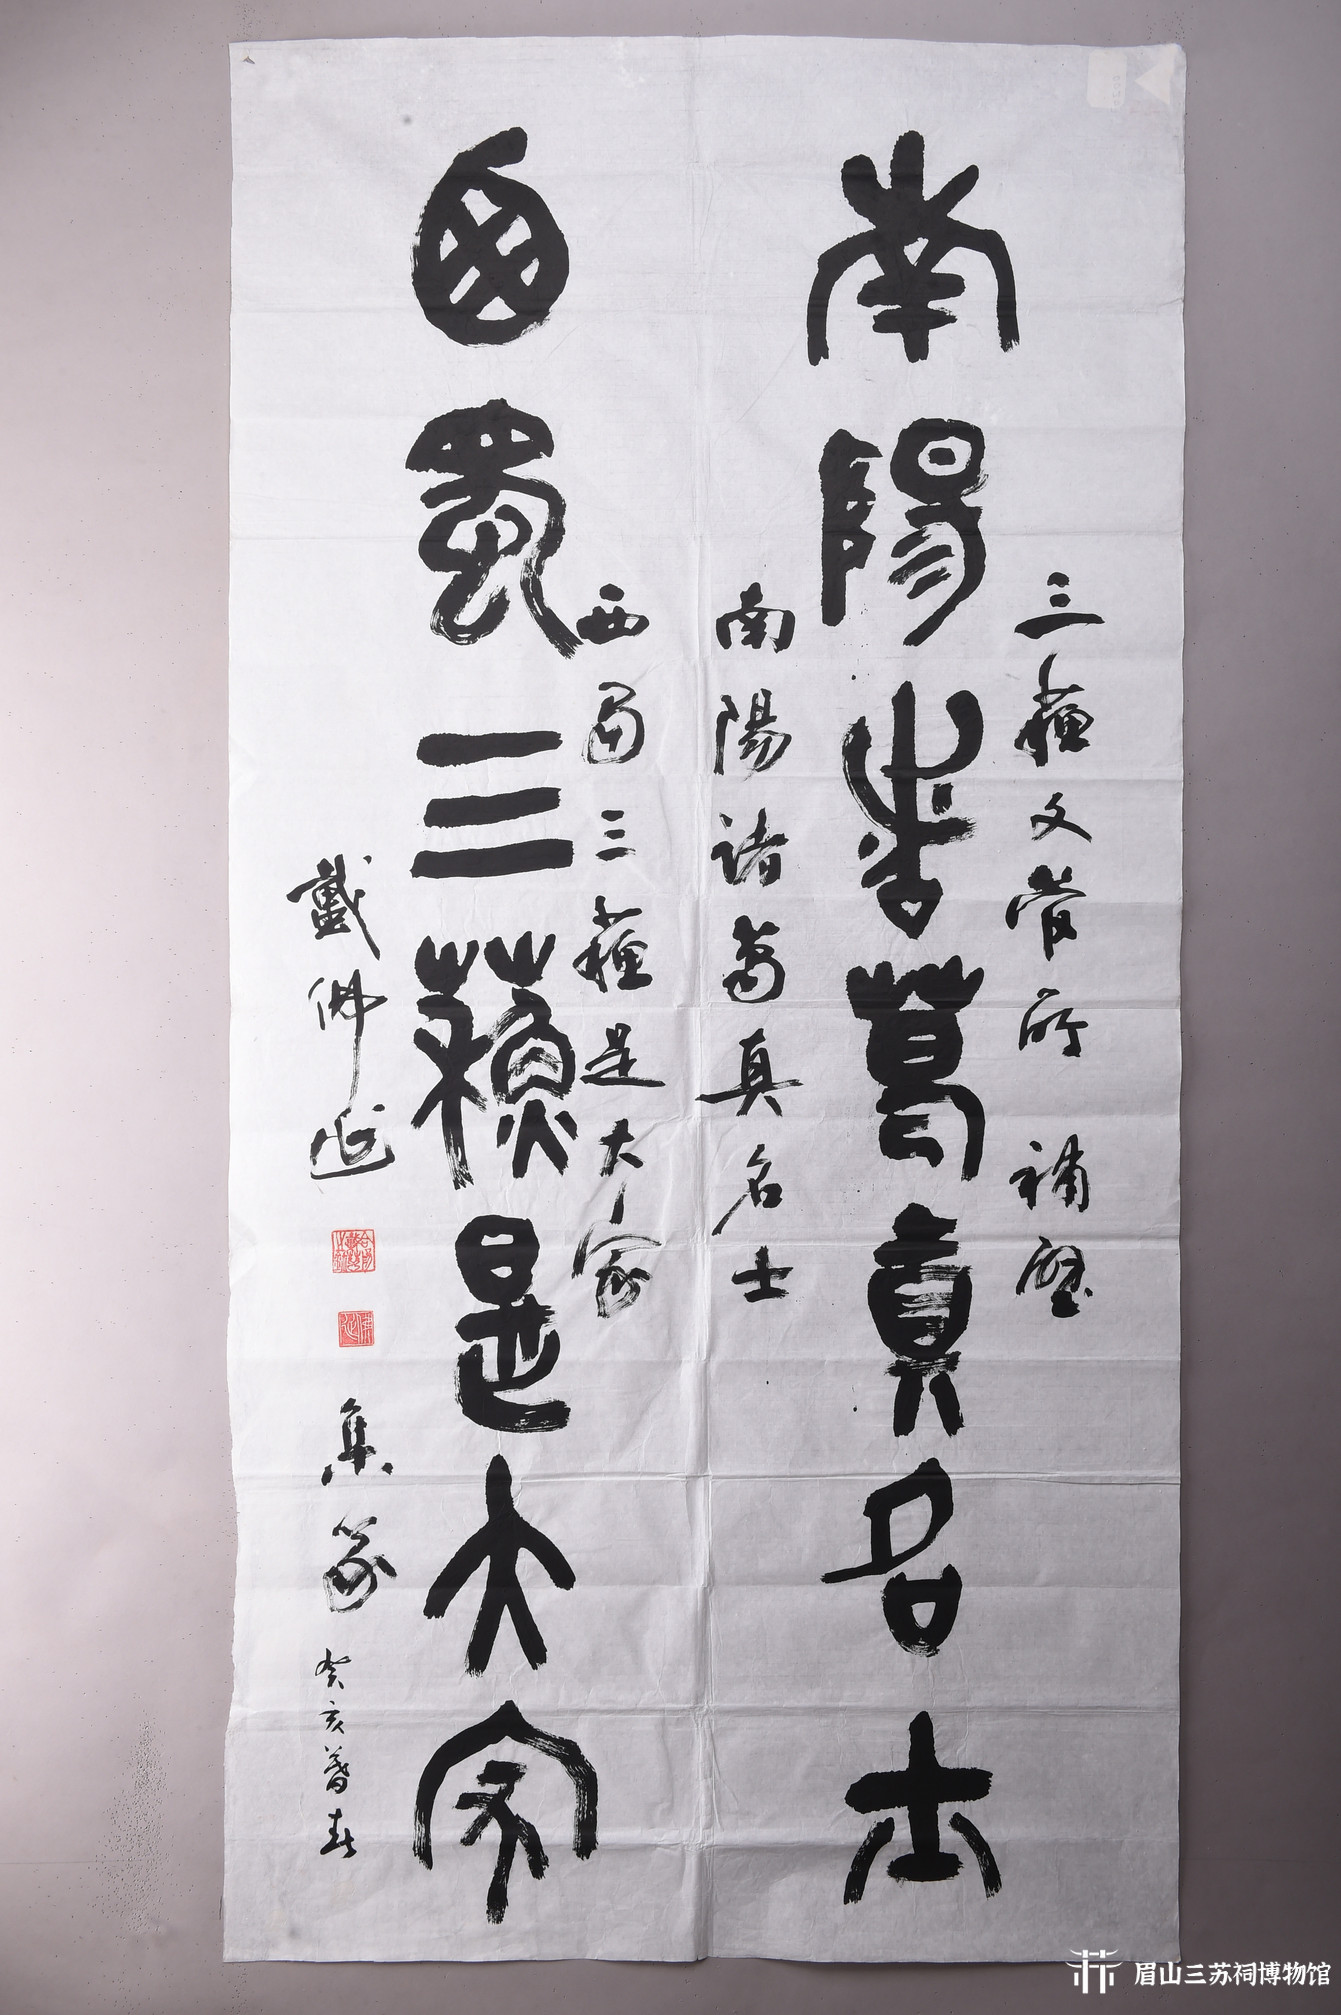 三蘇文管所補壁
南陽諸葛真名士
南陽諸葛真名士
西蜀三蘇是大家
西蜀三蘇是大家
戴佛
集篆
癸亥暮春
眉山三苏祠博物馆